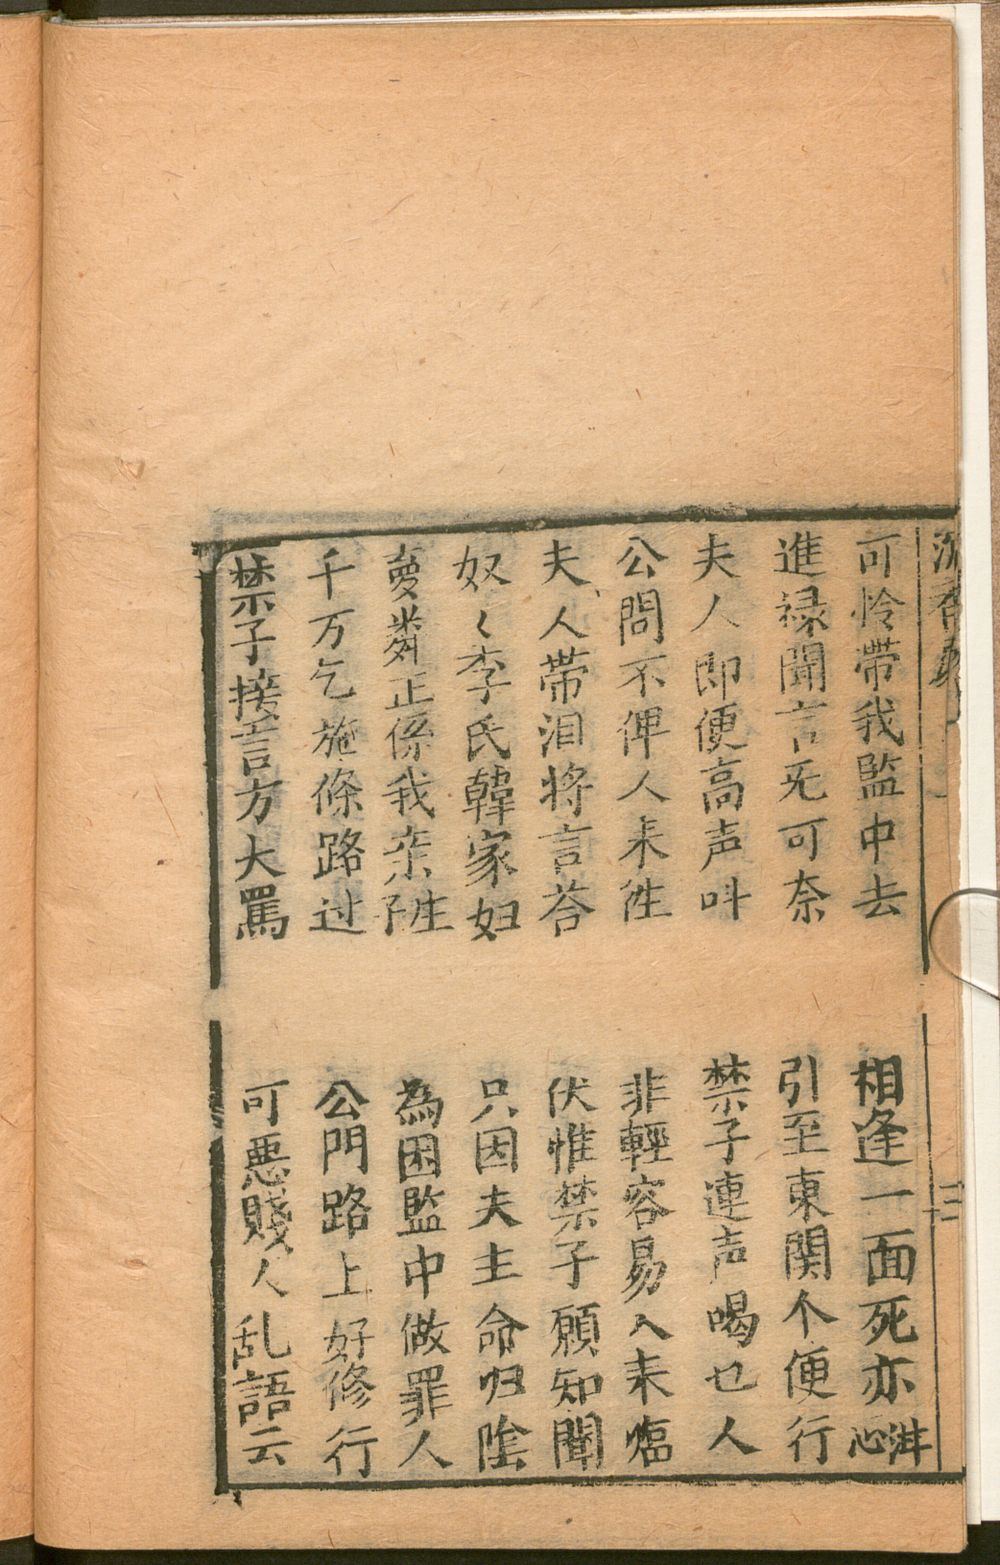 可怜帶我監中去 相逢一面死亦心
進禄聞言旡可奈 引至東関个便行
夫人即便高声呌 禁子連声喝乜人
公問不俾人来徃 非輕容易入来臨
夫人帶泪将言荅 伏惟禁子願知聞
奴〻李氏韓家妇 只因夫主命归陰
夢粦正係我亲陞 為困監中做罪人
千万乞施條路过 公門路上好修行
禁子接言方大罵 可悪賤人乱語云